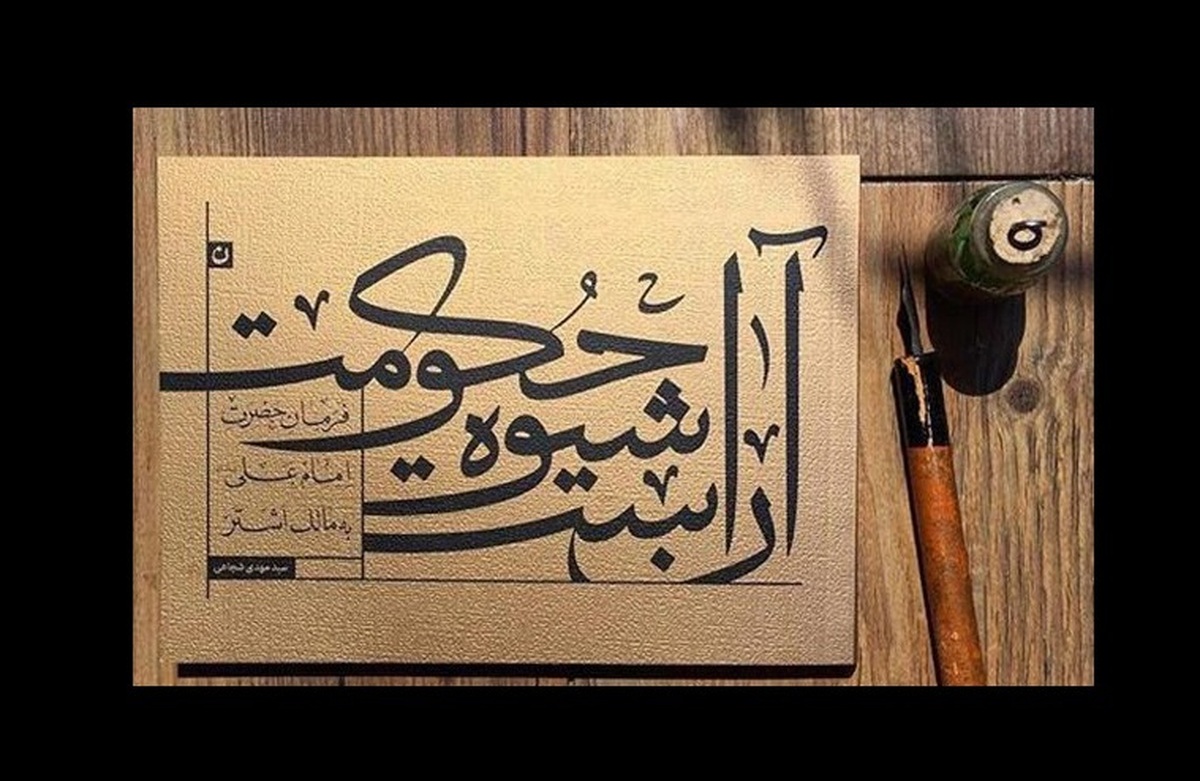 شیوه
حکومت
فرمان حضرت
امام علی
به مالک اشتر
سید مهدی شجاعی
ن